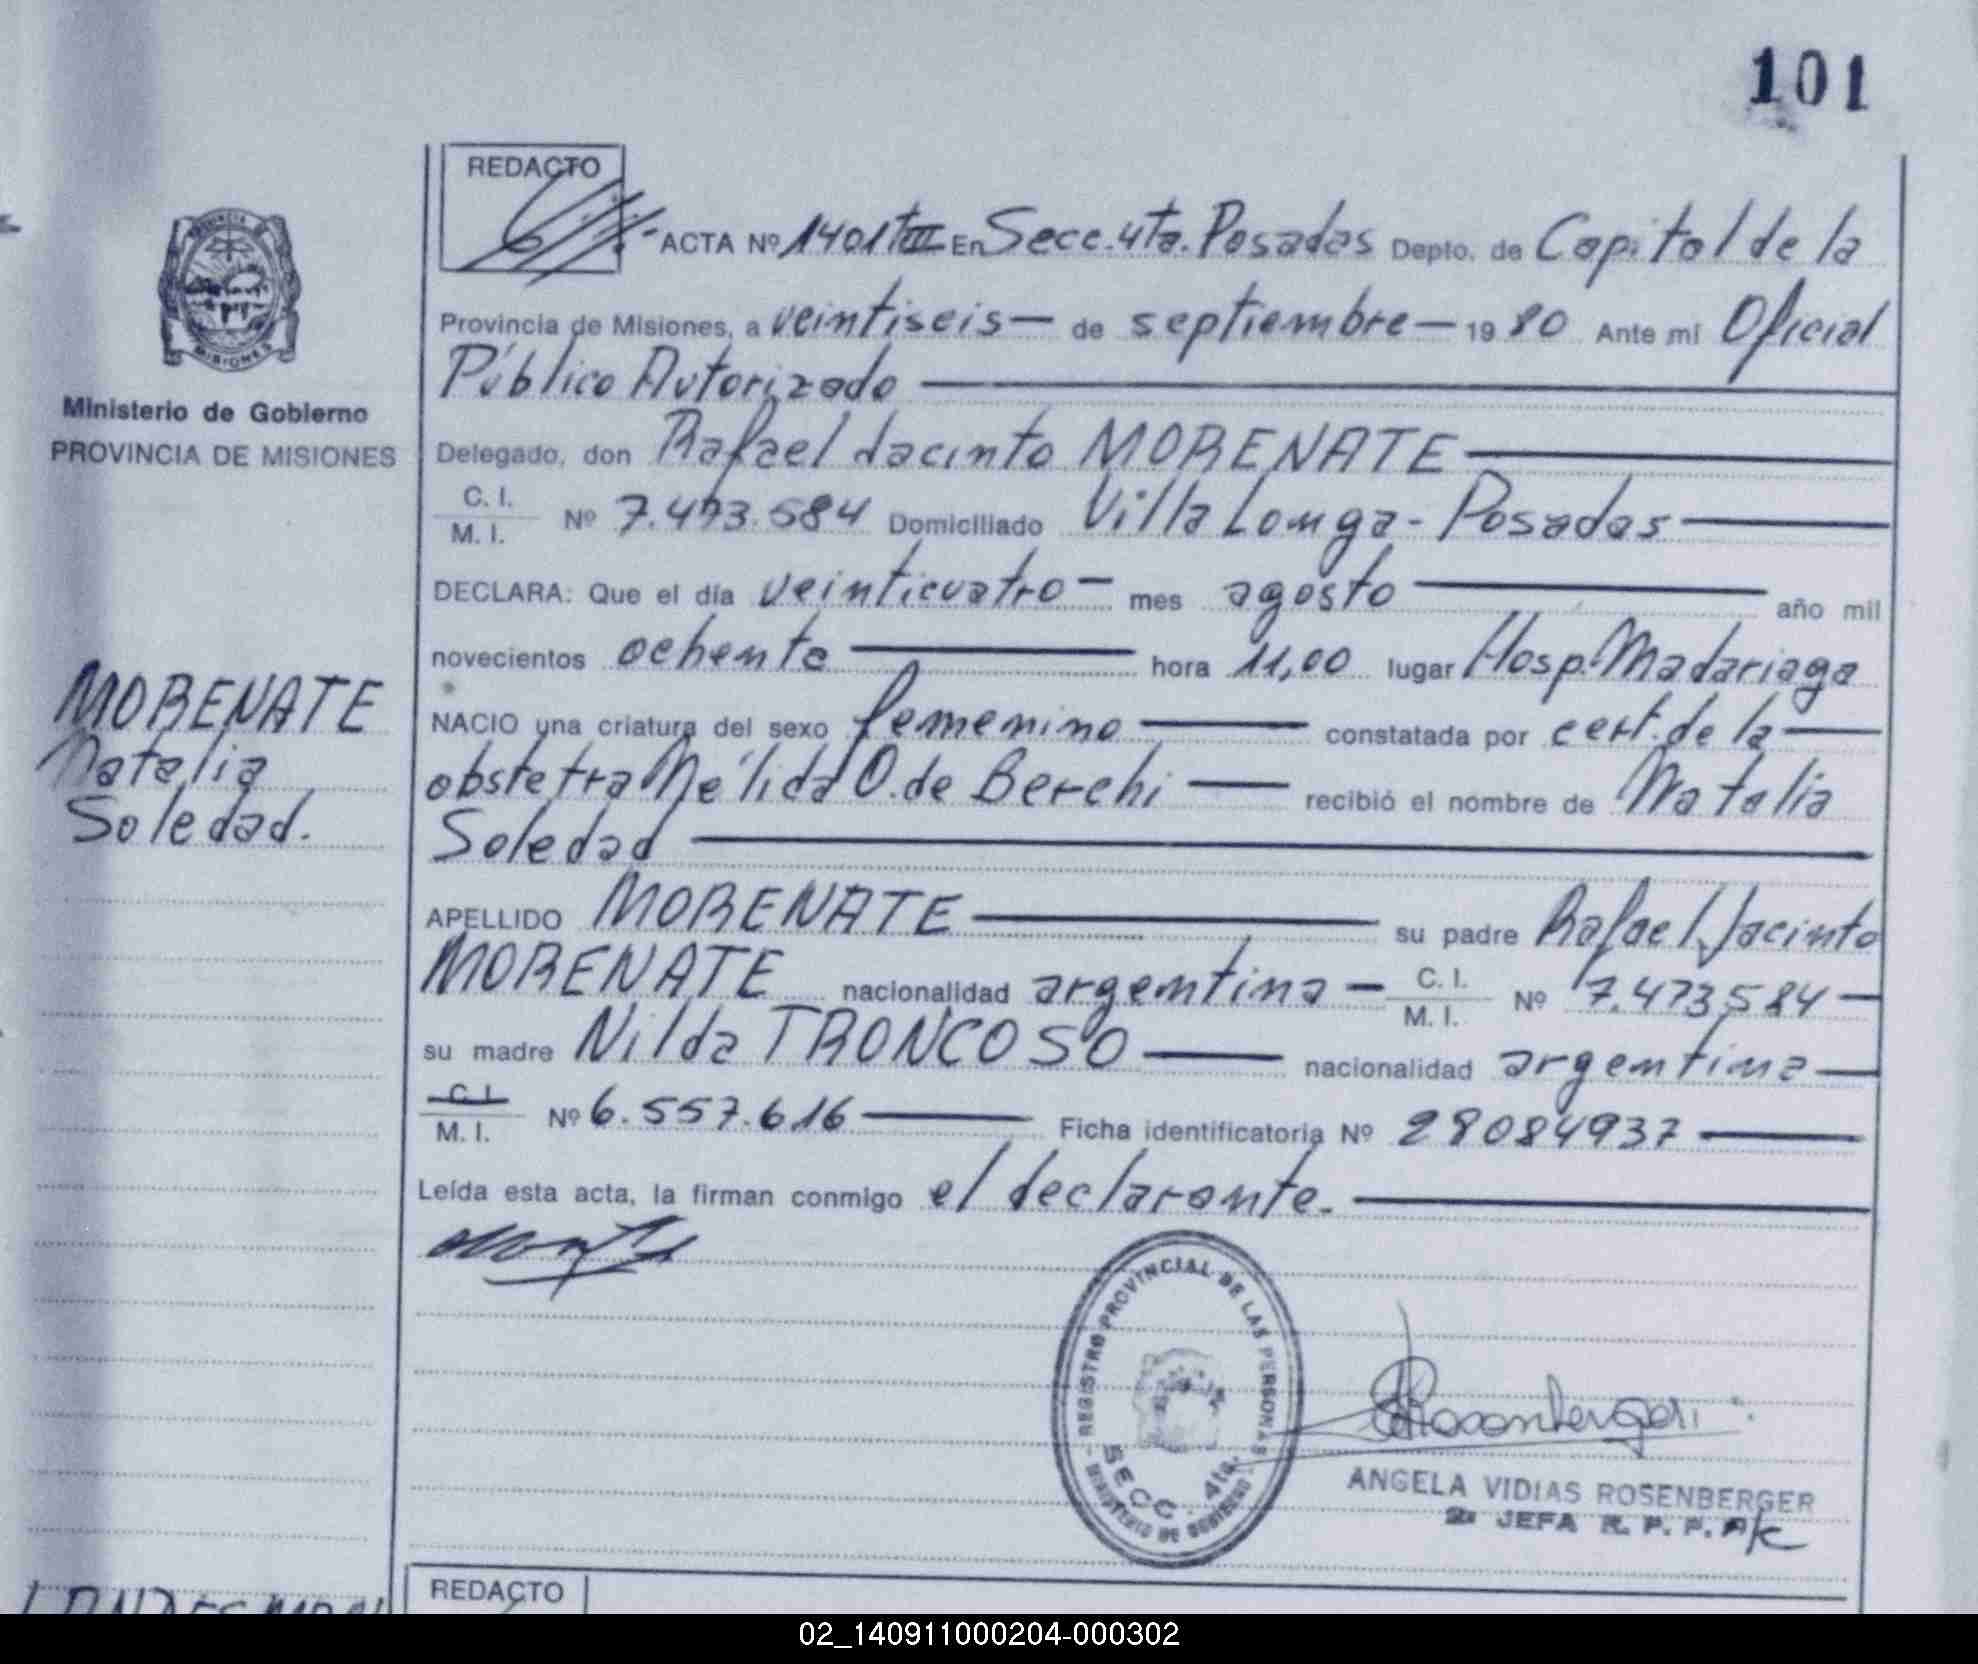 101
REDACTO
ACTA Nº 1401 TºIII En Secc. 4ta. Posadas Depto. de Capital de la
Provincia de Misiones, a veintiseis — de septiembre — 1980 Ante mi Oficial
Público Autorizado
Delegado, don Rafael Jacinto MORENATE
C. I.
M. I. Nº 7.473.584 Domiciliado Villa Longa - Posadas
DECLARA: Que el día veinticuatro — mes agosto año mil
novecientos ochenta hora 11,00 lugar Hosp. Madariaga
NACIO una criatura del sexo femenino constatada por cert. de la
obstetra Nélida O. de Berchi recibió el nombre de Natalia
Soledad
APELLIDO MORENATE su padre Rafael Jacinto
MORENATE nacionalidad argentina — C. I.
M. I. Nº 7.473584
su madre Nilda TRONCOSO nacionalidad argentina
C. I.
M. I. Nº 6.557.616 Ficha identificatoria Nº 28084937
Leída esta acta, la firman conmigo el declarante.
PROVINCIA DE
MISIONES
Ministerio de Gobierno
PROVINCIA DE MISIONES
MORENATE
Natalia
Soledad.
REGISTRO PROVINCIAL DE LAS PERSONAS
SECC. 4ta.
MINISTERIO DE GOBIERNO
ANGELA VIDIAS ROSENBERGER
2ª JEFA R. P. P. A/C
REDACTO
02_140911000204-000302